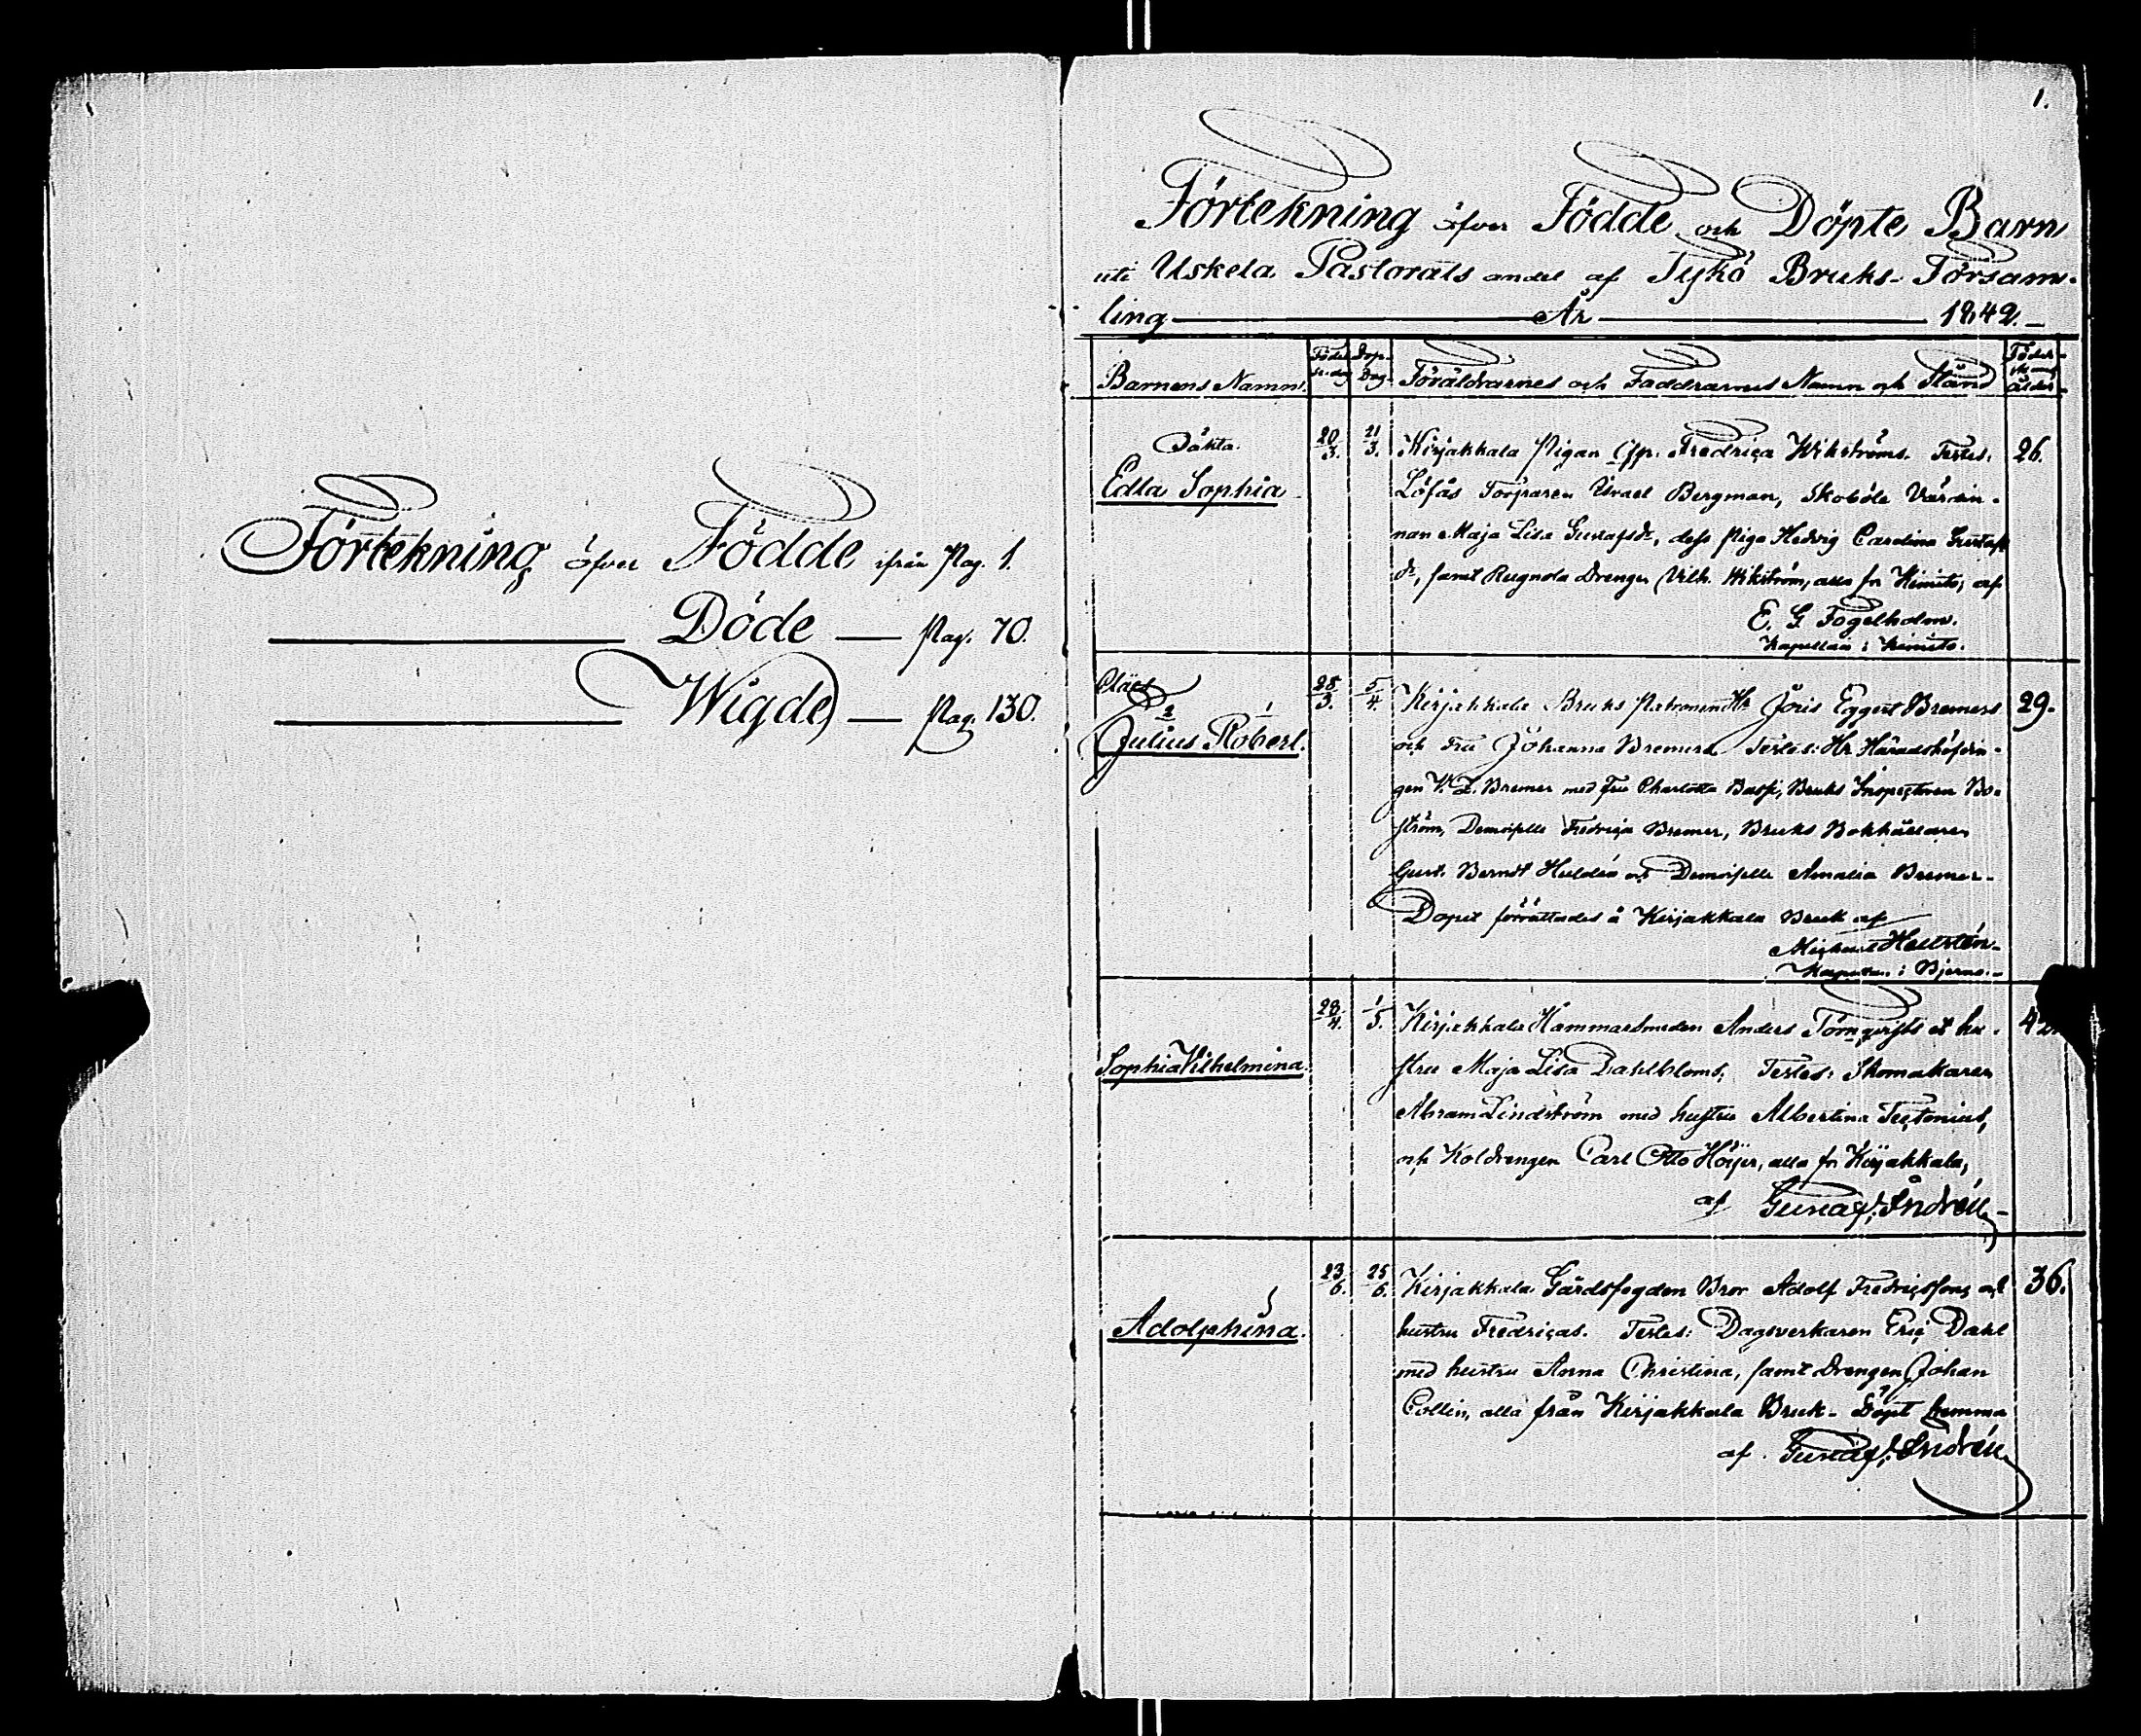 Förtekning öfver Födde ifrån Pag. 1.
Döde — Pag. 70.
Wigde — Pag. 130.
1.
Förtekning öfver Födde och Döpte Barn
uti Uskela Pastorats andel af Tykö Bruks-Försam-
ling År 1842.
Barnens Namn. Födel-se-dag Dop-Dag. Föräldrarnes och Faddrarnes Namn och Stånd
ålder
Oäkta. 20/3. 21/3. Kirjakkala Pigan Fredrica Wikströms. Testes: 26.
Edla Sophia Löfås Torparen Israel Bergman, Skoböle Värdin-
nan Maja Lisa Gustafsdr, dess Piga Hedvig Carolina Gustafs
dr, samt Rugnola Drengen Vilh. Wikström, alla fr Kimito, af
E. G Fogelholm.
Kapellan i Kimito.
25/3. 5/4. Kirjakkala Bruks Patronen Hr Jöris Eggert Bremers 29.
2 1
Julius Robert. och Fru Johanna Bremers Testes: Hr Häradshöfdin-
gen V. Z. Bremer med Fru Charlotta Basse, Bruks Inspectoren Bo-
ström, Demoiselle Fredrica Bremer, Bruks Bokhållaren
Gust. Berndt Huldén och Demoiselle Amalia Bremer.
Dopet förrättades å Kirjakkala Bruk af
Michael Hellstén
Kapellan i Bjerno.
28/4. 1/5. Kirjakkala Hammarsmeden Anders Törnqvists et hu-
Sophia Vilhelmina. stru Maja Lisa Dahlbloms, Testes: Skomakaren
Abram Lindström med hustru Albertina Tectonius,
och Koldrengen Carl Otto Höijer, alla fr Kirjakkala,
af Gustaf Andrén
23/6. 25/6. Kirjakkala Gårdsfogden Bror Adolf Fredricssons och 36.
Adolphina. hustru Fredricas. Testes: Dagsverkaren Eric Dahl
med hustru Anna Christina, samt drengen Johan
Collin, alla från Kirjakkala Bruk. Döpt hemma
af Gustaf Andrén